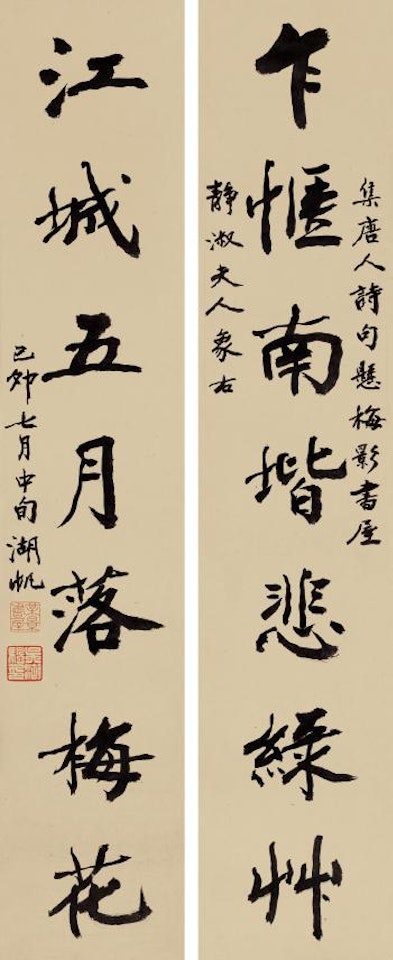 乍愜南堦悲綠艸
集唐人詩句懸梅影書屋
靜淑夫人象右
江城五月落梅花
己卯七月中旬湖帆